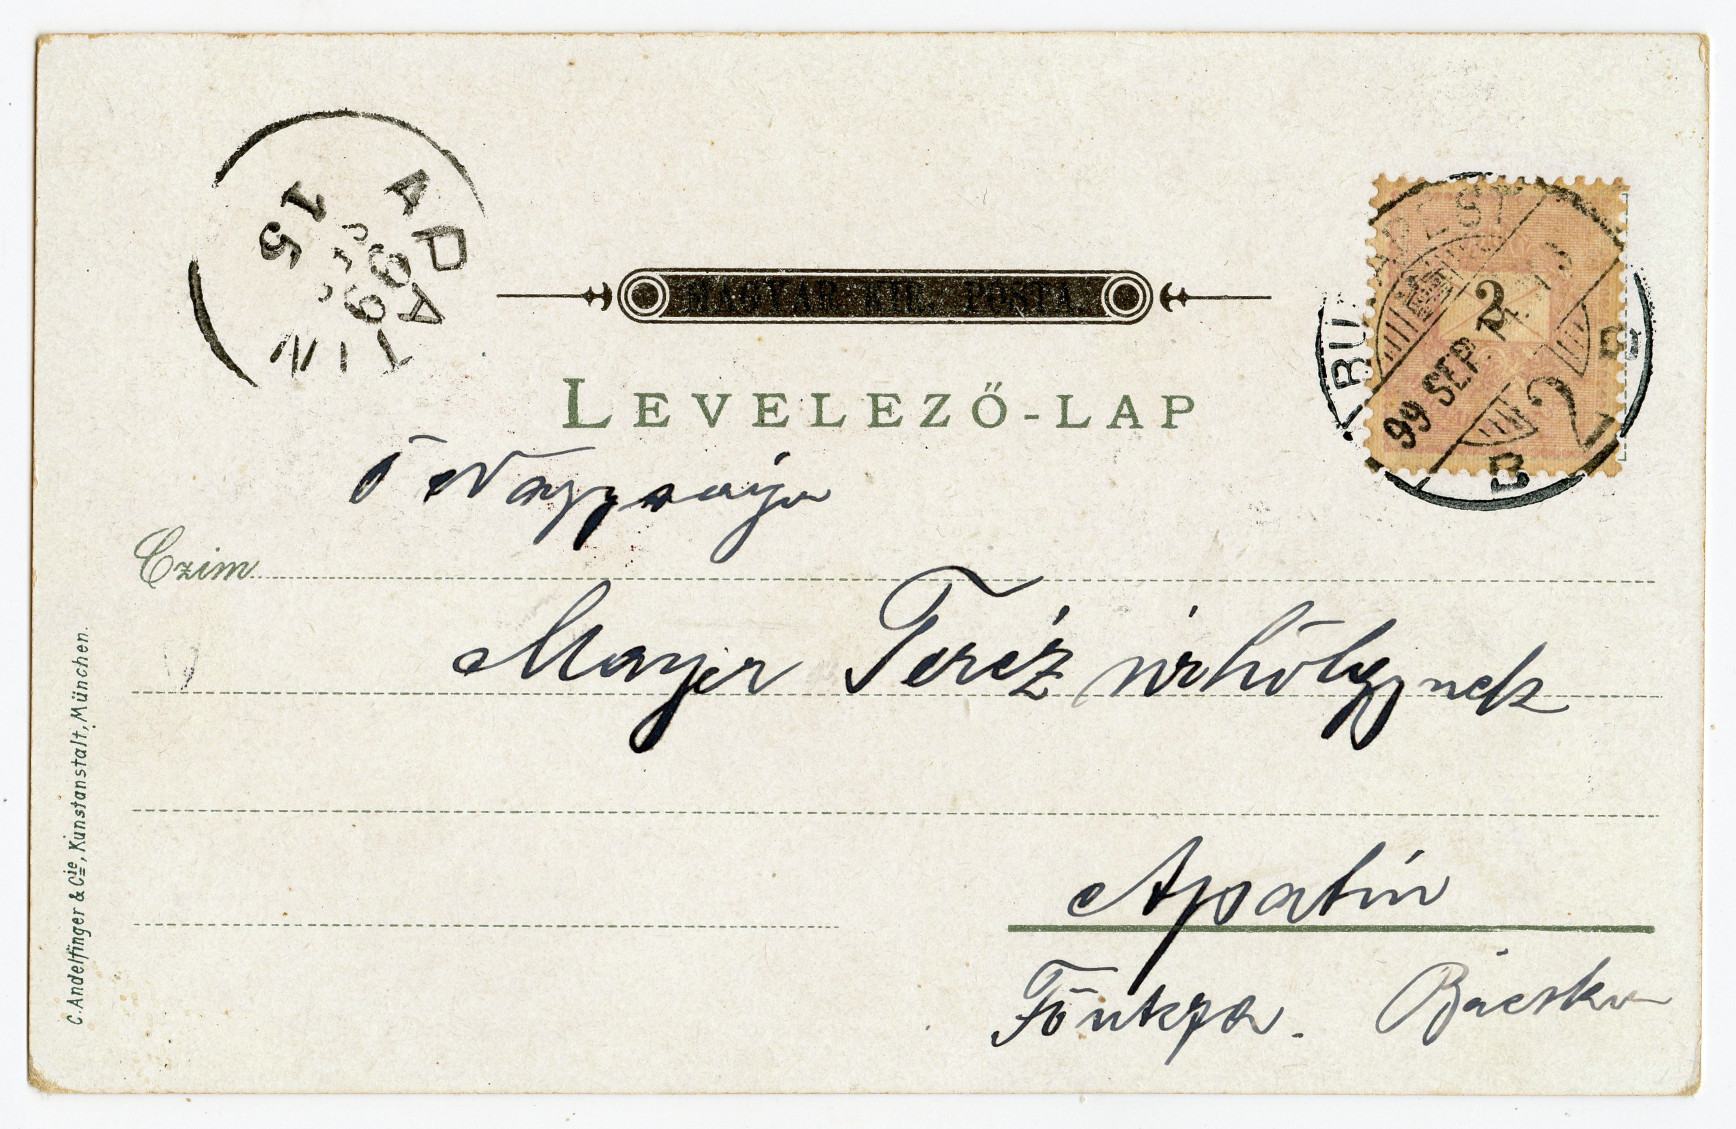 APATIN
99
15
BUDAPEST
99 SEP. 14.
B
B
2
2
MAGYAR KIR. POSTA.
LEVELEZŐ-LAP
Ő Nagysága
Czim
Mayer Teréz úrhölgynek
Apatin
Főutcza. Bácska
C. Andelfinger & Cie, Kunstanstalt, München.